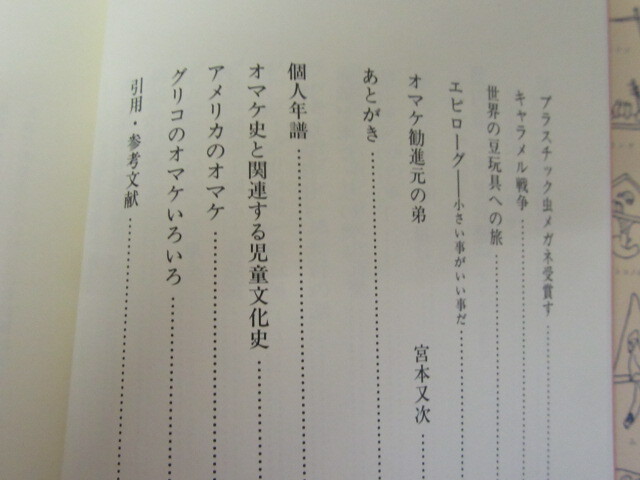 プラスチック虫メガネ受賞す
キャラメル戦争
世界の豆玩具への旅
エピローグ――小さい事がいい事だ
オマケ勧進元の弟　宮本又次
あとがき
個人年譜
オマケ史と関連する児童文化史
アメリカのオマケ
グリコのオマケいろいろ
引用・参考文献